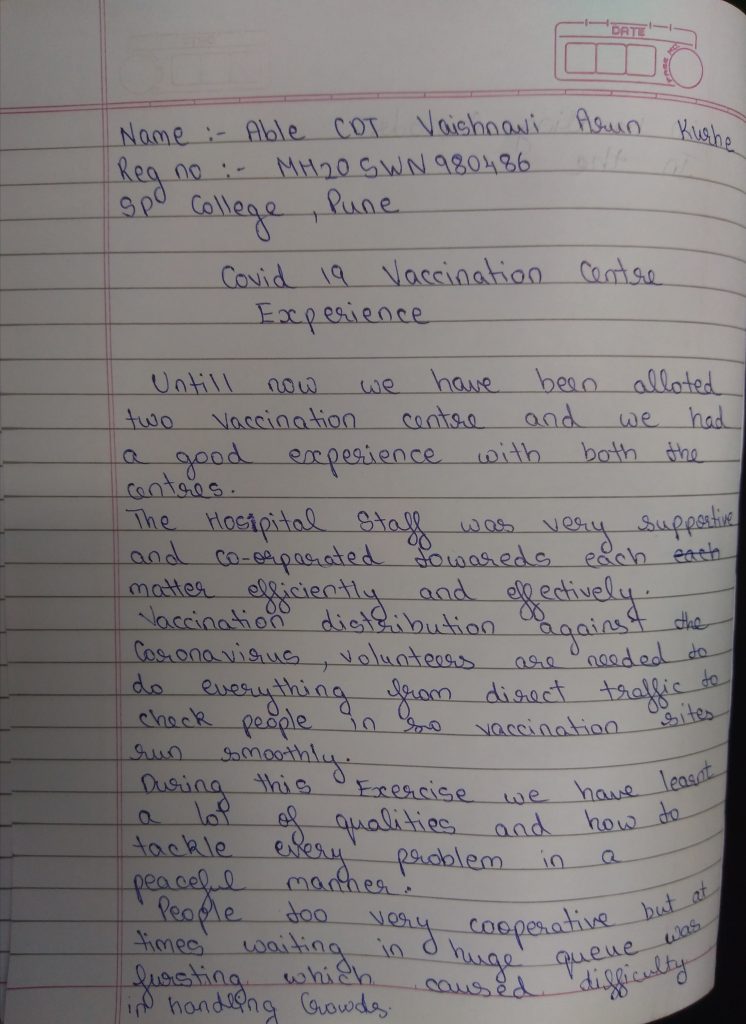 DATE
PAGE NO.
Name :- Able CDT Vaishnavi Arun Kurhe
Reg no :- MH20 SWN 980486
SP College , Pune
Covid 19 Vaccination Centre
Experience
Untill now we have been alloted
two vaccination centre and we had
a good experience with both the
centres.
The Hosipital Staff was very supportive
and co-orparated towareds each each
matter efficiently and effectively.
Vaccination distribution against the
Coronavirus , volunteers are needed to
do everything from direct traffic to
check people in so vaccination sites
run smoothly.
During this Exercise we have learnt
a lot of qualities and how to
tackle every problem in a
peaceful manner.
People too very cooperative but at
times waiting in huge queue was
fursting which caused difficulty
in handling Crowds.